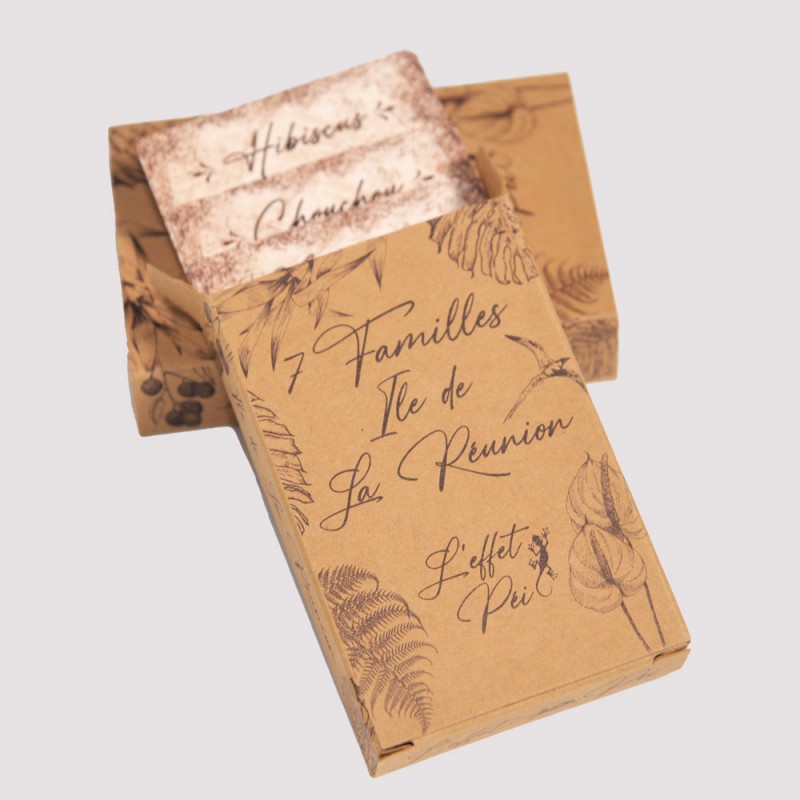 Hibiscus
Chouchou
7 Familles
Ile de
La Réunion
L'effet
Péi